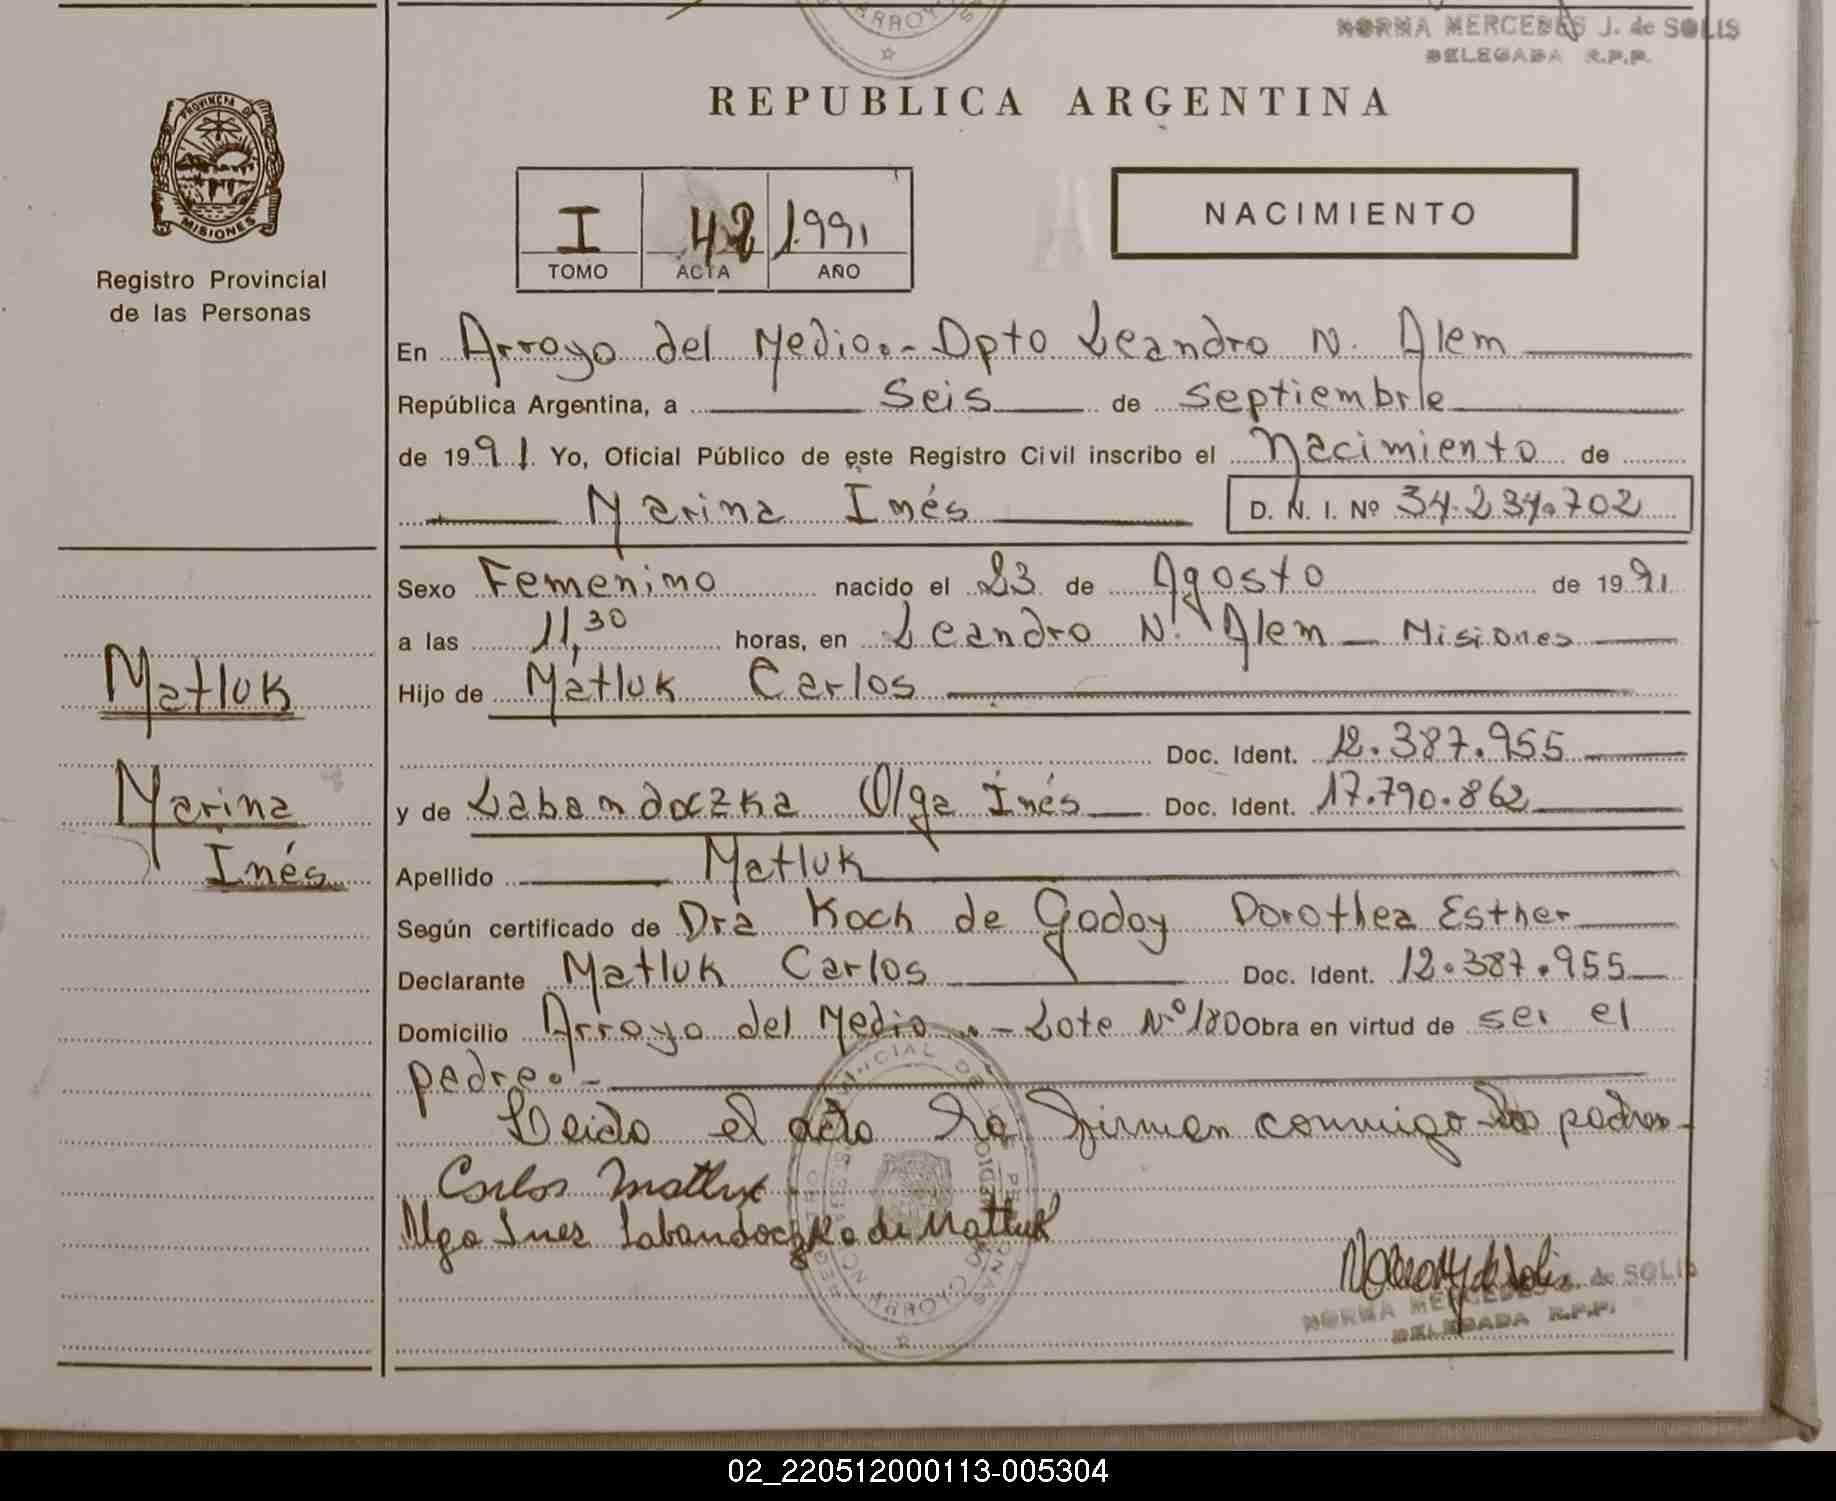 ARROYO
NORMA MERCEDES J. de SOLIS
DELEGADA R.P.P.
REPUBLICA ARGENTINA
PROVINCIA DE
MISIONES
Registro Provincial
de las Personas
I 42 1991
TOMO ACTA AÑO
NACIMIENTO
En Arroyo del Medio.- Dpto Leandro N. Alem
República Argentina, a seis de septiembre
de 1991. Yo, Oficial Público de este Registro Civil inscribo el Nacimiento de
Marina Inés D. N. I. Nº 34.234.702
Sexo Femenino nacido el 23 de Agosto de 1991
a las 11,30 horas, en Leandro N. Alem - Misiones
Hijo de Matluk Carlos
Doc. Ident. 12.387.955
y de Labandoczka Olga Inés Doc. Ident. 17.790.862
Apellido Matluk
Según certificado de Dra Koch de Godoy Dorothea Esther
Declarante Matluk Carlos Doc. Ident. 12.387.955
Domicilio Arroyo del Medio.- Lote Nº 180 Obra en virtud de ser el
padre.-
Leida el acta la firman conmigo los padres-
Carlos Matluk
Olga Ines Labandoczka de Matluk
NORMA MERCEDES J. de SOLIS
DELEGADA R.P.P.
Matluk
Marina
Inés
02_220512000113-005304